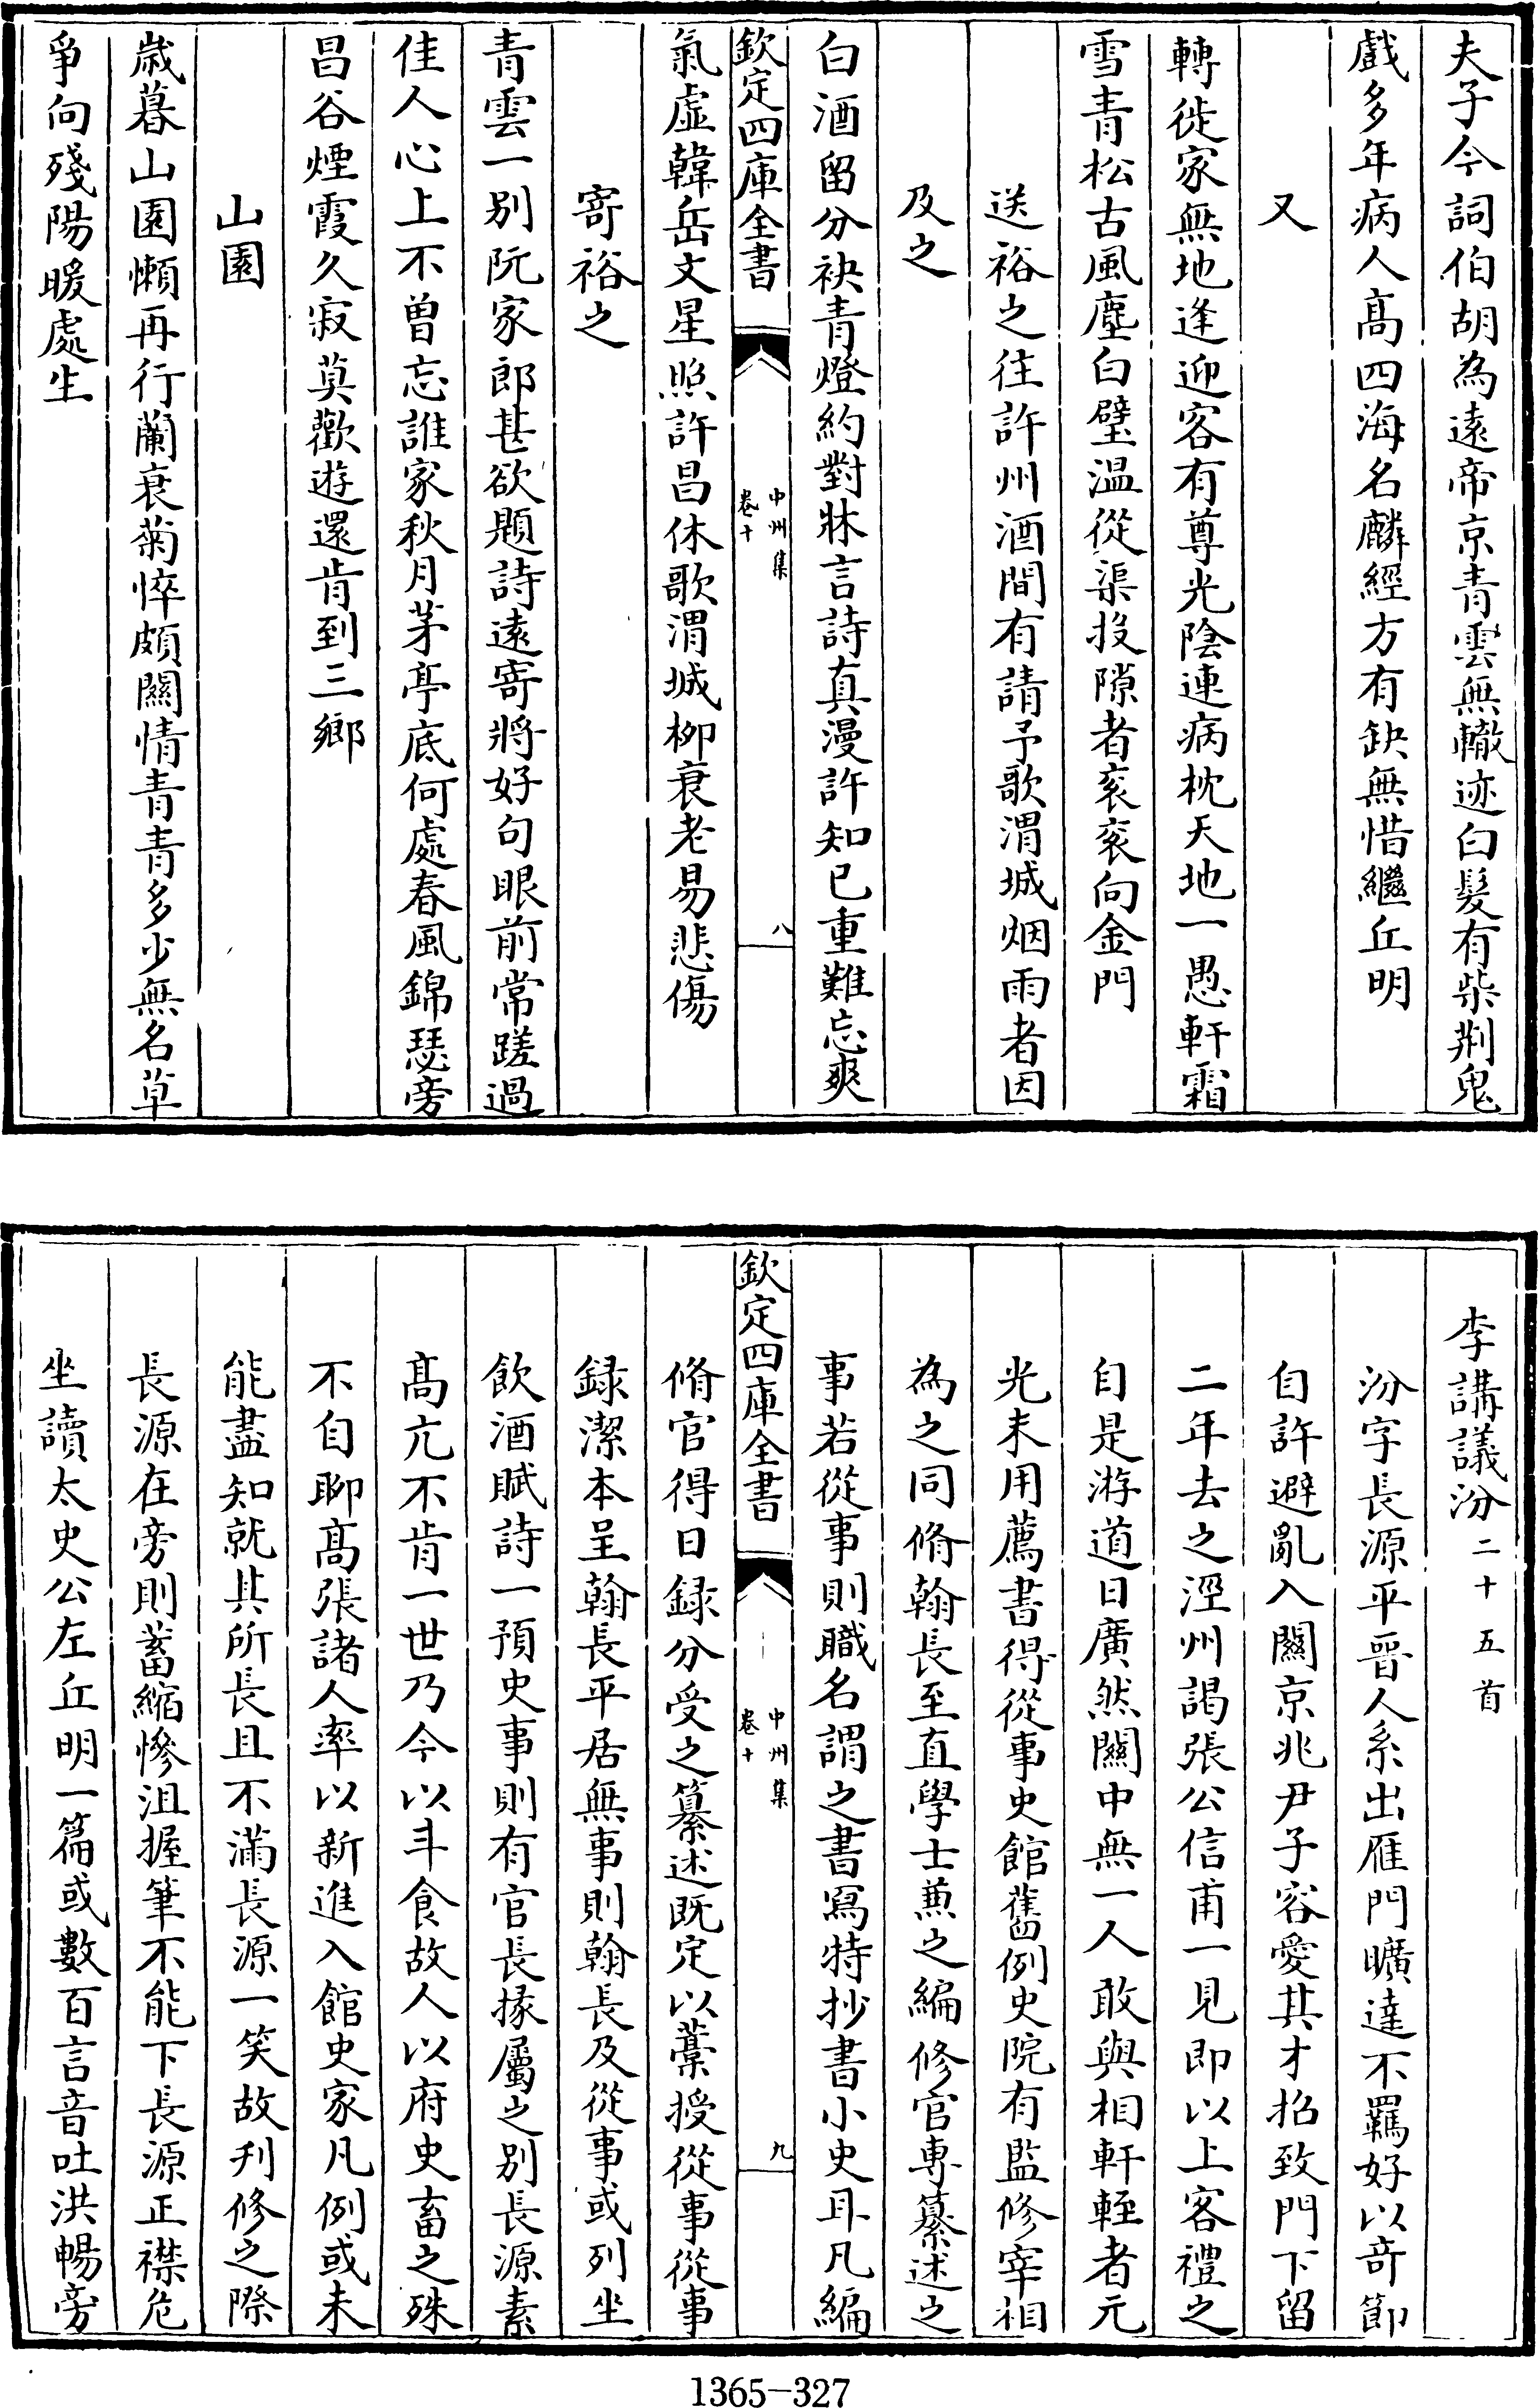 夫子今詞伯胡為遠帝京青雲無轍迹白髮有柴荆鬼
戲多年病人髙四海名麟經方有缺無惜繼丘明
又
轉徙家無地逢迎客有尊光陰連病枕天地一愚軒霜
雪青松古風塵白璧温從渠投隙者衮衮向金門
送裕之往許州酒間有請予歌渭城烟雨者因
及之
白酒留分袂青燈約對牀言詩真漫許知已重難忘爽
欽定四庫全書
中州集
卷十
八
氣虛韓岳文星照許昌休歌渭城柳衰老易悲傷
寄裕之
青雲一别阮家郎甚欲題詩遠寄將好句眼前常蹉過
佳人心上不曽忘誰家秋月茅亭底何處春風錦瑟旁
昌谷煙霞久寂莫歡遊還肯到三鄉
山園
歲暮山園懶再行蘭衰菊悴頗關情青青多少無名草
爭向殘陽暖處生
李講議汾二十五首
汾字長源平晉人系出雁門曠達不羈好以奇節
自許避亂入關京兆尹子容愛其才招致門下留
二年去之涇州謁張公信甫一見即以上客禮之
自是游道日廣然關中無一人敢與相軒輊者元
光末用薦書得從事史館舊例史院有監修宰相
為之同脩翰長至直學士兼之編修官專纂述之
事若從事則職名謂之書寫特抄書小史耳凡編
欽定四庫全書
中州集
卷十
九
脩官得日録分受之纂述既定以藁授從事從事
録潔本呈翰長平居無事則翰長及從事或列坐
飲酒賦詩一預史事則有官長掾屬之别長源素
髙亢不肯一世乃今以斗食故人以府史畜之殊
不自聊髙張諸人率以新進入館史家凡例或未
能盡知就其所長且不滿長源一笑故刋修之際
長源在旁則蓄縮慘沮握筆不能下長源正襟危
坐讀太史公左丘明一篇或數百言音吐洪暢旁
1365-327